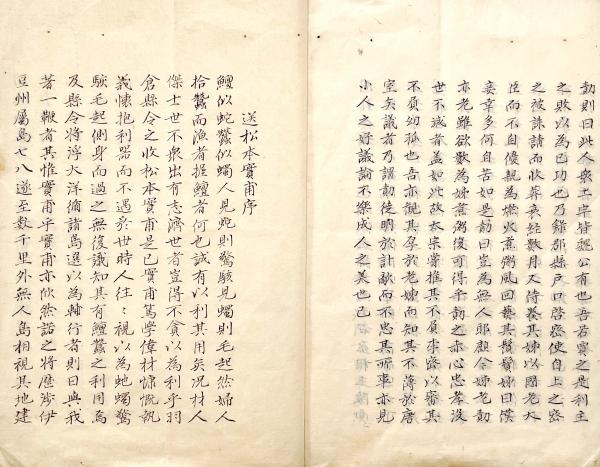 勣則曰此人衆土宇皆魏公有也吾若獻之是利主
之敗以為己功也乃錄郡縣戸口啓密使自上之密
之被誅請而收葬衰経數月又侍養其姊以國老大
臣而不自傲親為燃火煮粥風回爇其鬢鬚姊曰僕
妾幸多何自苦如是勣曰豈為無人耶顧今姊老勣
亦老雖欲數為姊煮粥復可得乎勣之亦心忠孝沒
世不減者蓋如此故太宗嘗推其不負李密以審其
不負幼孤也吾亦觀其厚於老姊而知其不薄於唐
室矣議者乃謂勣徒明於計敵而不忠其所事亦見
小人之好議論不樂成人之美也已
送松本實甫序
鱣似蛇蠶似蠋人見蛇則驚駭見蠋則毛起然婦人
拾蠶而漁者握鱣者何也誠有以利其用矣况材人
傑士世不衆出有志濟世者豈得不貪以為利乎羽
倉縣令之收松本實甫是已實甫篤學偉材慷慨執
義懷抱利器而不遇於世時人往〻視以為虵蠋驚
駭毛起側身而過之無復識知其有鱣蠶之利用焉
及縣令將浮大洋循諸島選以為輔行者則曰與我
著一鞭者其惟實甫乎實甫亦欣然諾之將歷涉伊
豆州屬島七八遂至數千里外無人島相視其地建